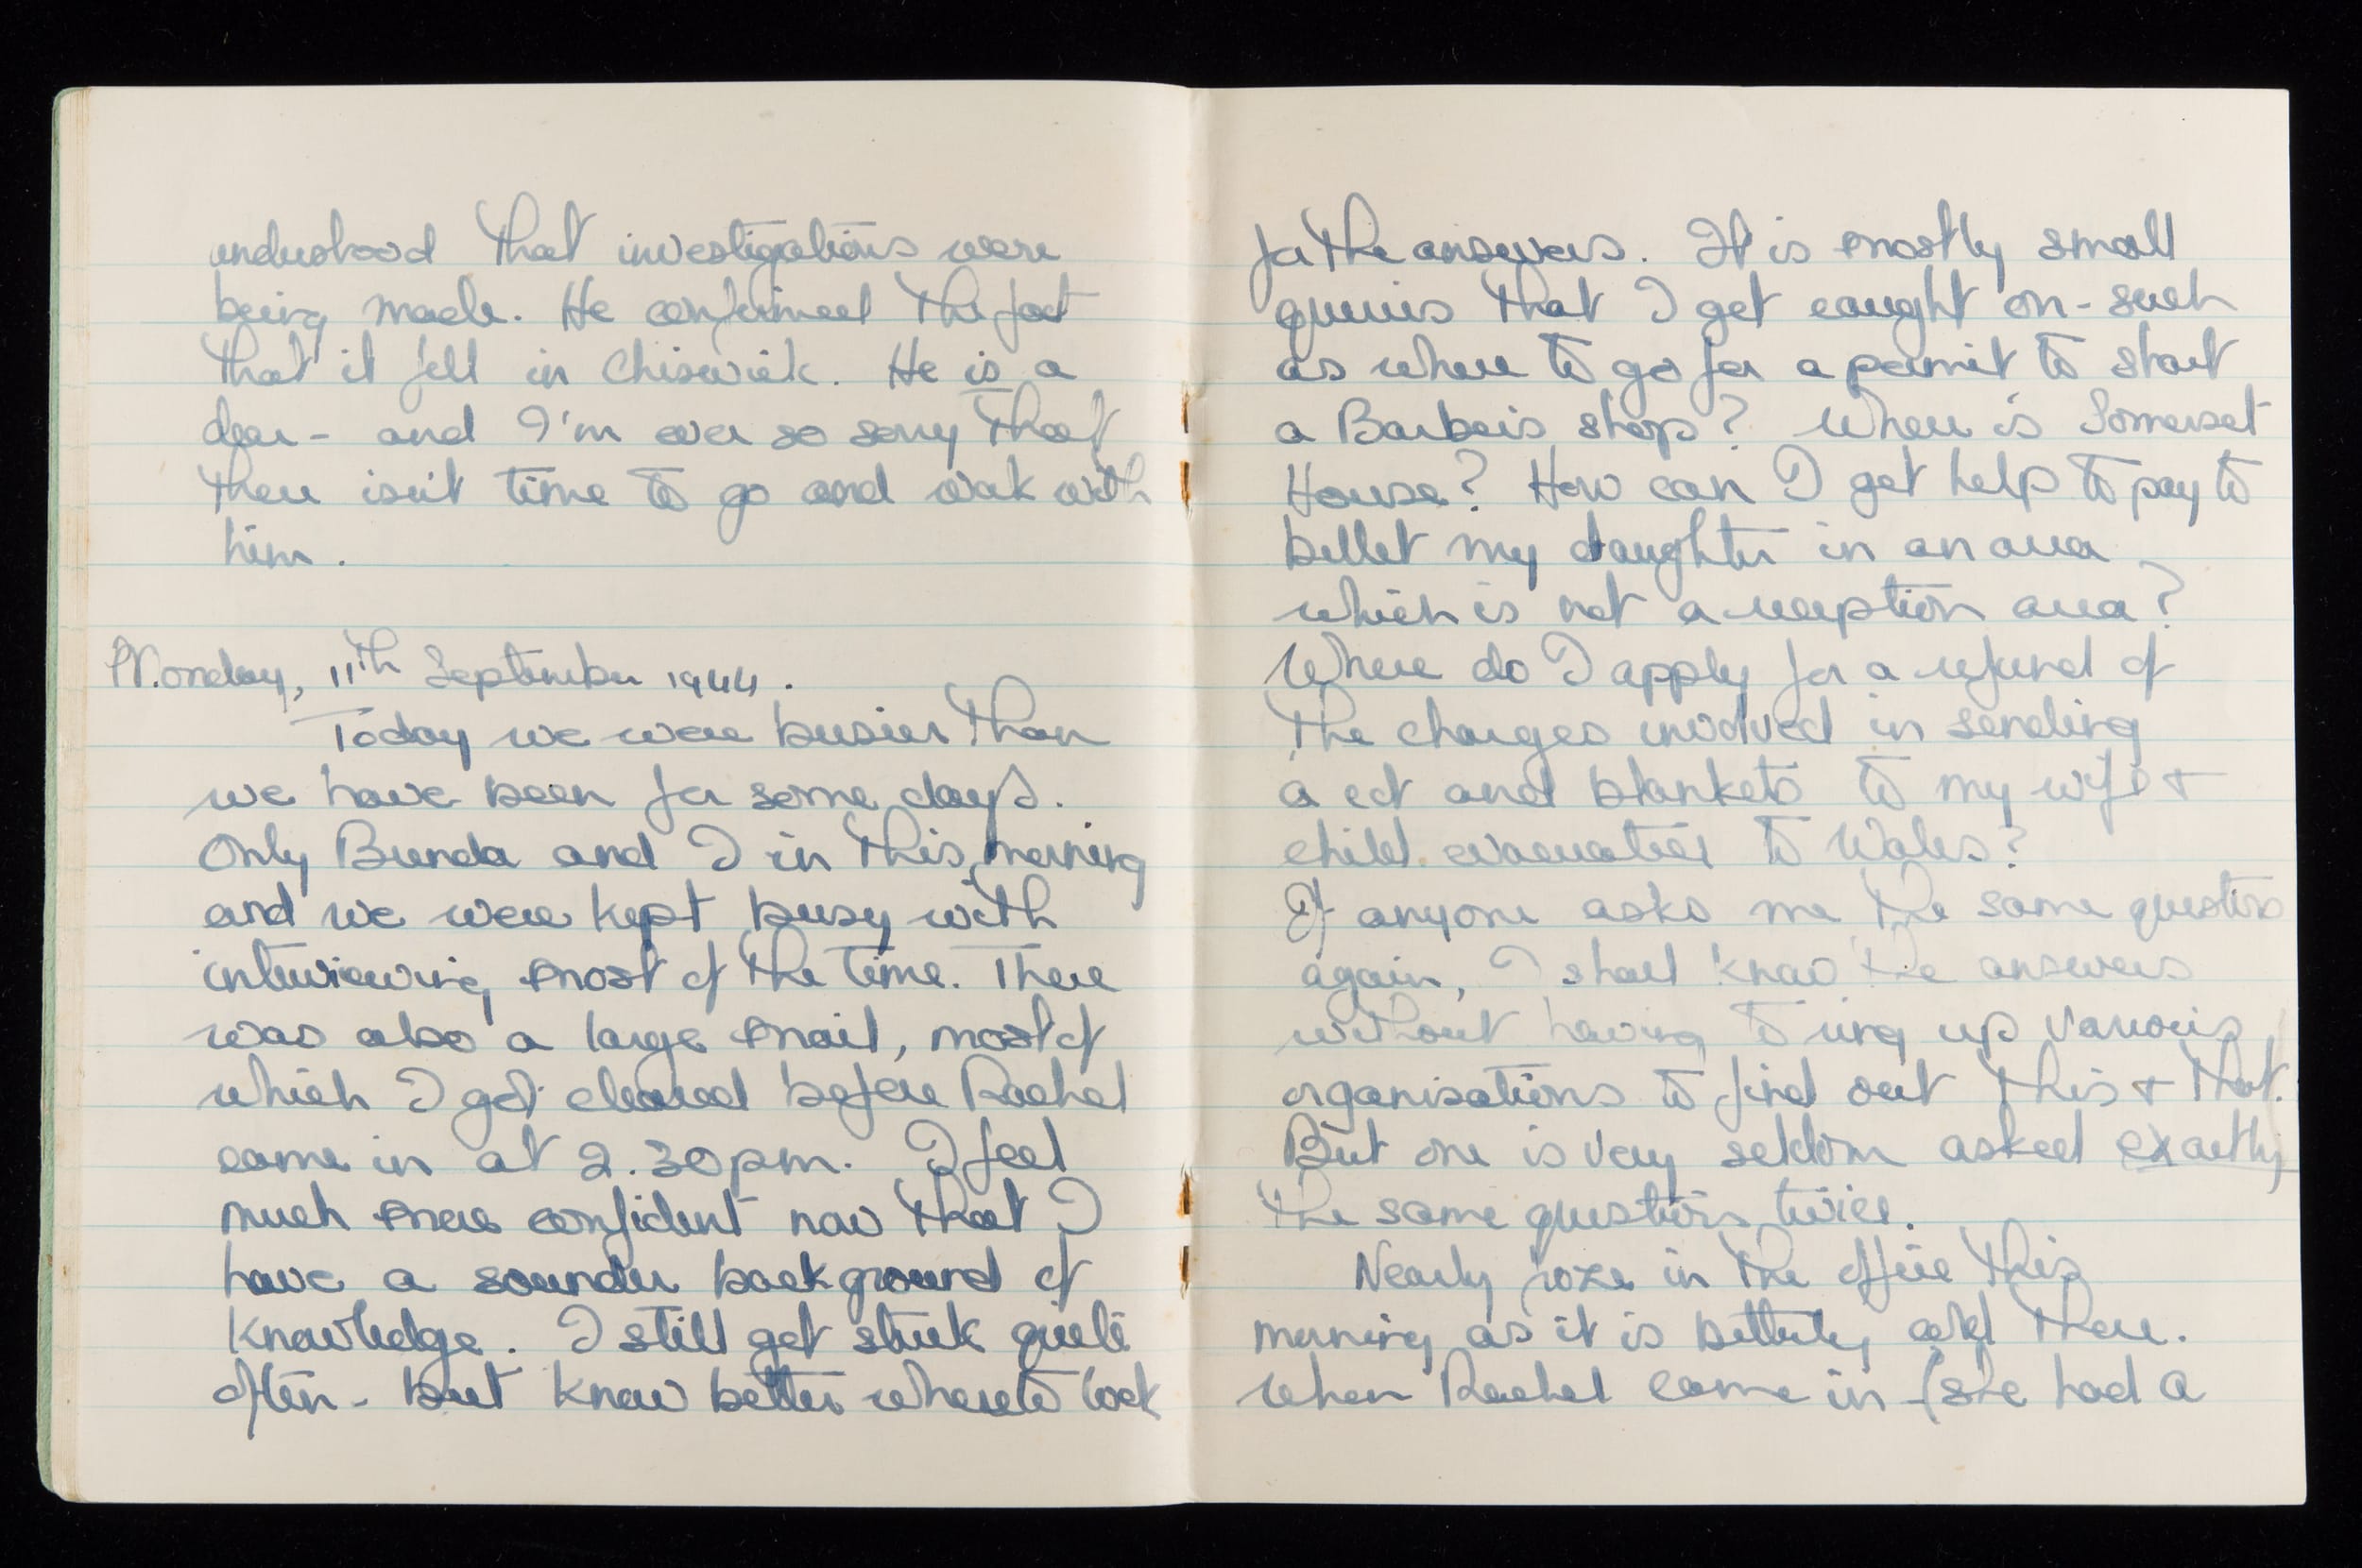 understood that investigations were
being made. He confirmed the fact
that it fell in Chiswick. He is a
dear - and I'm ever so sorry that
there isn't time to go and work with
him.
Monday, 11th September 1944.
Today we were busier than
we have been for some days.
Only Brenda and I in this morning
and we were kept busy with
interviewing most of the time. There
was also a large mail, most of
which I got cleared before Rachel
came in at 2.30pm. I feel
much more confident now that I
have a sounder background of
knowledge. I still get stuck quite
often - but know better where to look
for the answers. It is mostly small
queries that I get caught on - such
as where to go for a permit to start
a Barbers shop? Where is Somerset
House? How can I get help to pay to
billet my daughter in an area
which is not a reception area?
Where do I apply for a refund of
the charges involved in sending
a cot and blankets to my wife +
child evacuated to Wales?
If anyone asks me the same questions
again, I shall know the answers
without having to ring up various
organisations to find out this + that.
But one is very seldom asked exactly
the same question twice.
Nearly froze in the office this
morning as it is bitterly cold there.
When Rachel came in - (she had a